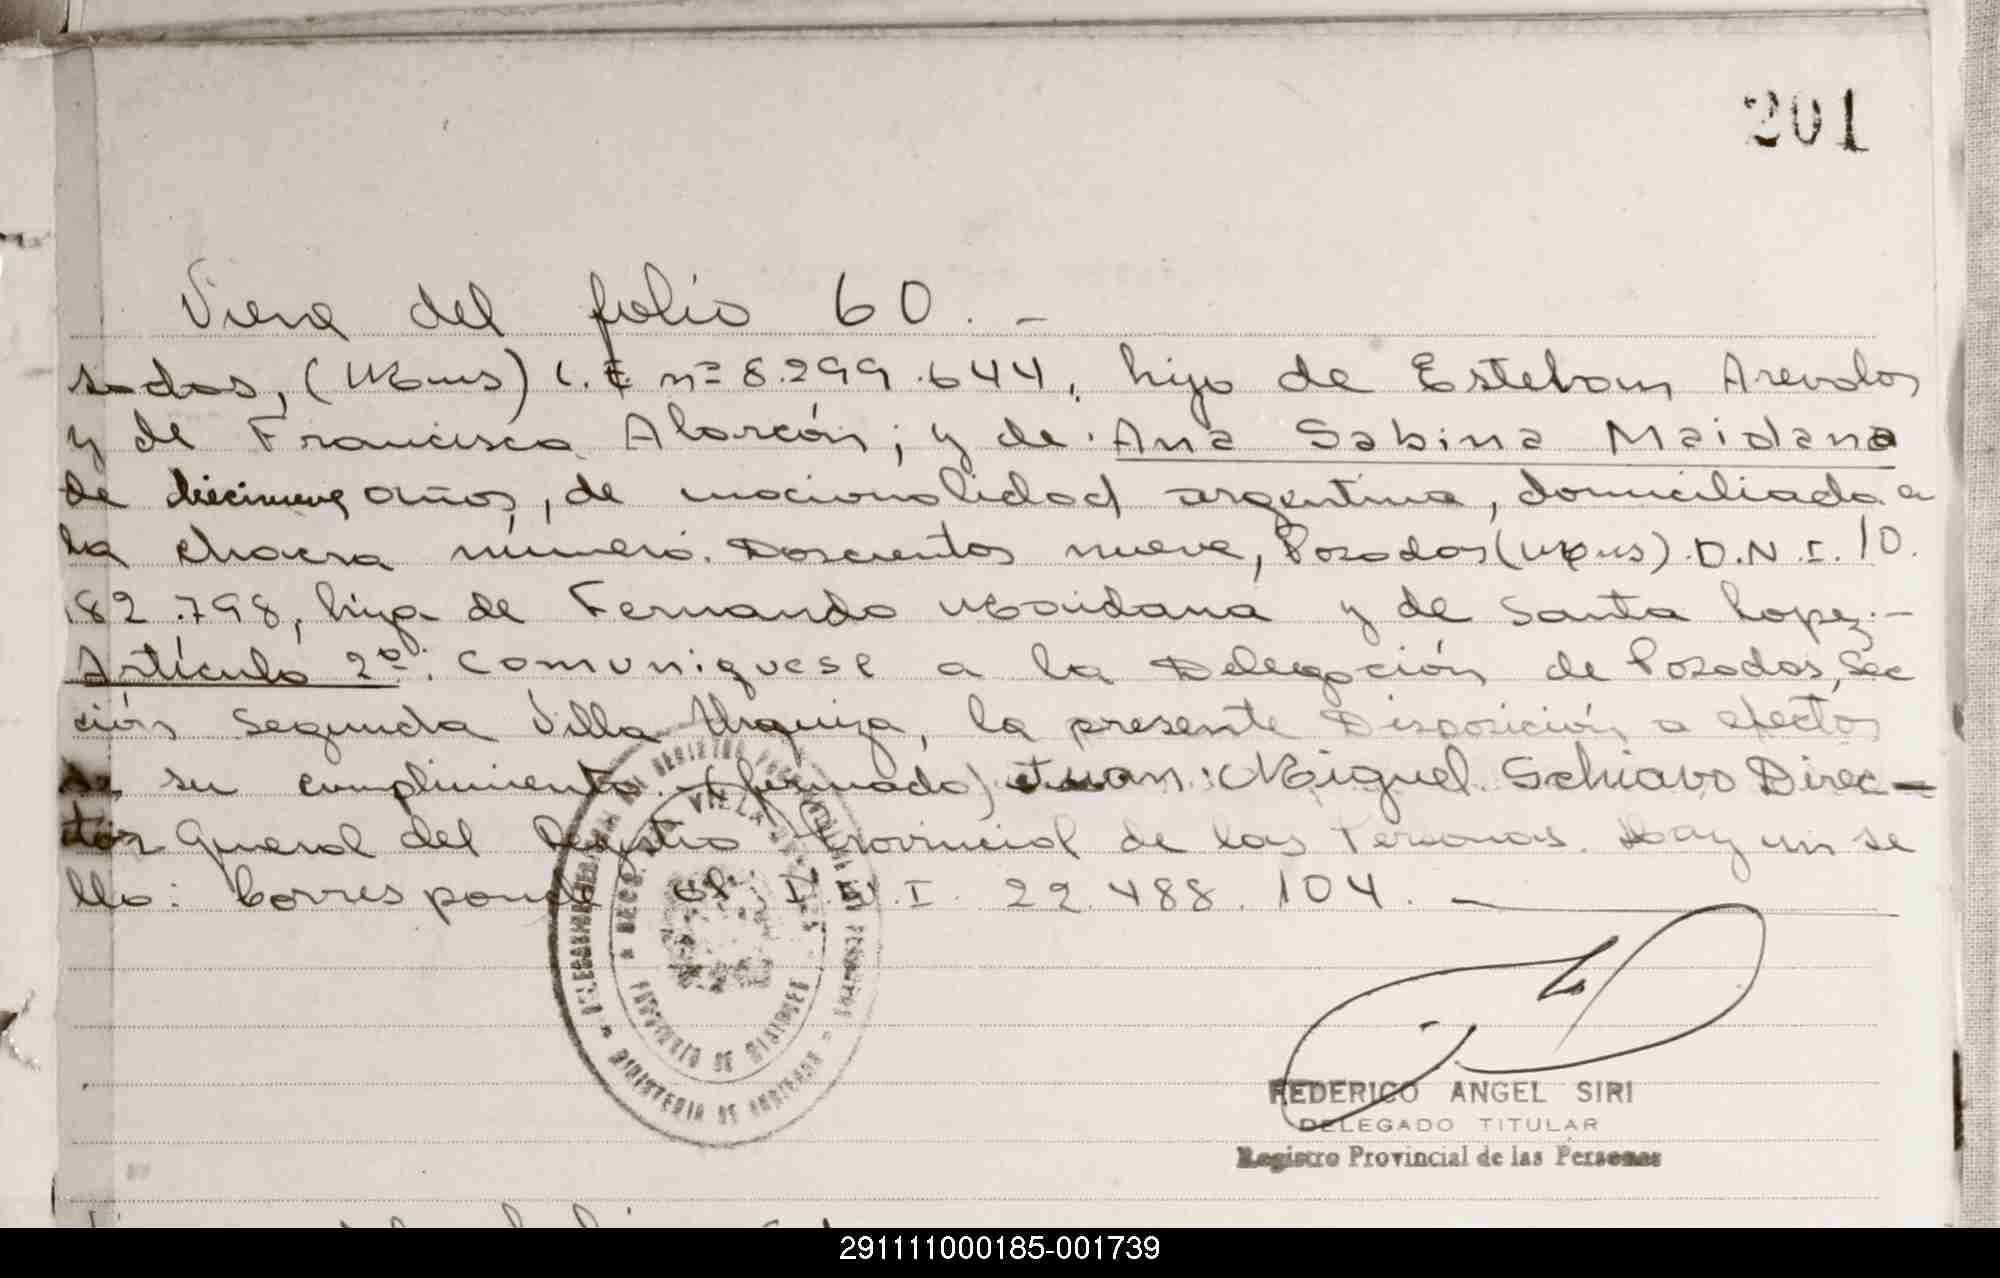 201
Viene del folio 60. -
sadas, (Mnes) L.E nº 8.299.644, hijo de Esteban Arevalos
y de Francisca Alarcón; y de: Ana Sabina Maidana
de diecinueve años, de nacionalidad argentina, domiciliada a
la chacra número. Doscientos nueve, Posadas (Mnes). D.N.I. 10.
182.798, hija de Fernando Maidana y de Santa Lopez.-
Artículo 2º: Comuniquese a la Delegación de Posadas, Sec
ción Segunda Villa Urquiza, la presente Disposición a efectos
de su cumplimiento. (firmado) Juan: Miguel Schiavo Direc-
tor General del Registro Provincial de las Personas. Hay un se
llo: Corresponde al D.N.I. 22.488.104.
FEDERICO ANGEL SIRI
DELEGADO TITULAR
Registro Provincial de las Personas
291111000185-001739